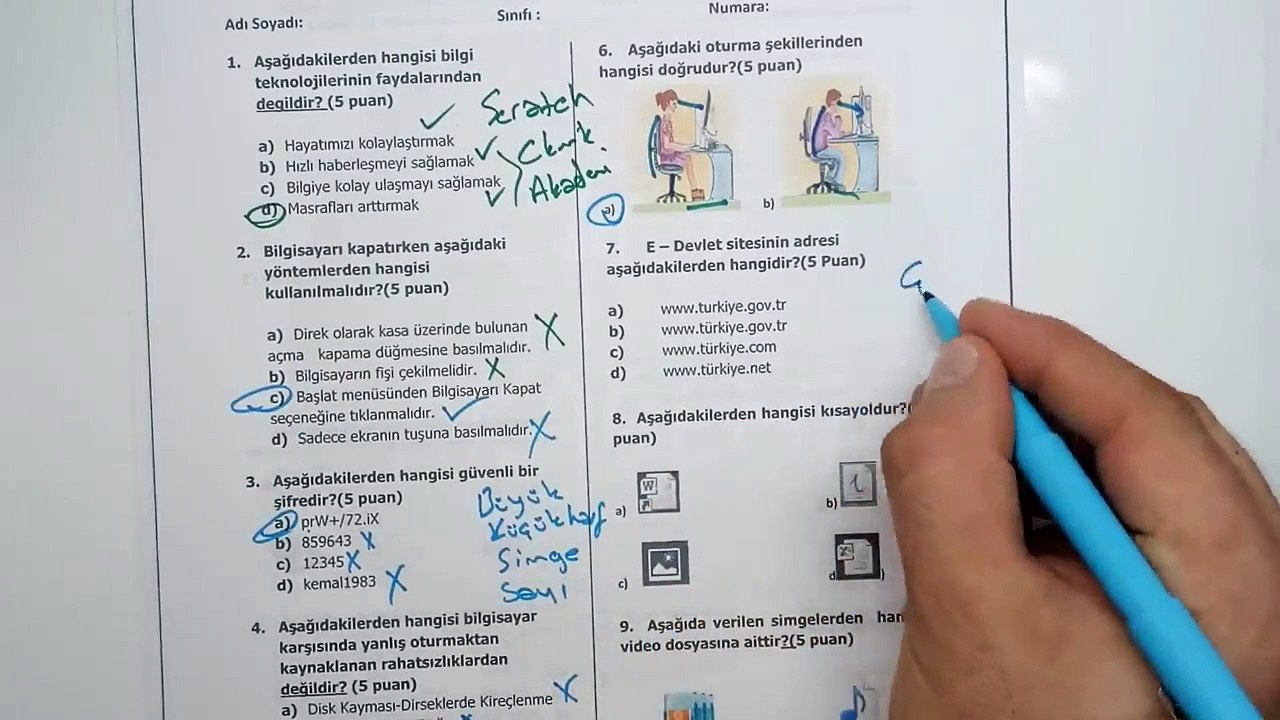 Adı Soyadı:
Sınıfı :
Numara:
1. Aşağıdakilerden hangisi bilgi
teknolojilerinin faydalarından
değildir? (5 puan)
a) Hayatımızı kolaylaştırmak
b) Hızlı haberleşmeyi sağlamak
c) Bilgiye kolay ulaşmayı sağlamak
d) Masrafları arttırmak
Scratch
Akademi
2. Bilgisayarı kapatırken aşağıdaki
yöntemlerden hangisi
kullanılmalıdır?(5 puan)
a) Direk olarak kasa üzerinde bulunan
açma kapama düğmesine basılmalıdır.
b) Bilgisayarın fişi çekilmelidir.
c) Başlat menüsünden Bilgisayarı Kapat
seçeneğine tıklanmalıdır.
d) Sadece ekranın tuşuna basılmalıdır.
3. Aşağıdakilerden hangisi güvenli bir
şifredir?(5 puan)
a) prW+/72.iX
b) 859643
c) 12345
d) kemal1983
Büyük
Küçük harf
Simge
Sayı
4. Aşağıdakilerden hangisi bilgisayar
karşısında yanlış oturmaktan
kaynaklanan rahatsızlıklardan
değildir? (5 puan)
a) Disk Kayması-Dirseklerde Kireçlenme
6. Aşağıdaki oturma şekillerinden
hangisi doğrudur?(5 puan)
a)
b)
7. E – Devlet sitesinin adresi
aşağıdakilerden hangidir?(5 Puan)
a) www.turkiye.gov.tr
b) www.türkiye.gov.tr
c) www.türkiye.com
d) www.türkiye.net
8. Aşağıdakilerden hangisi kısayoldur?(
puan)
a)
b)
c)
d)
9. Aşağıda verilen simgelerden han
video dosyasına aittir?(5 puan)